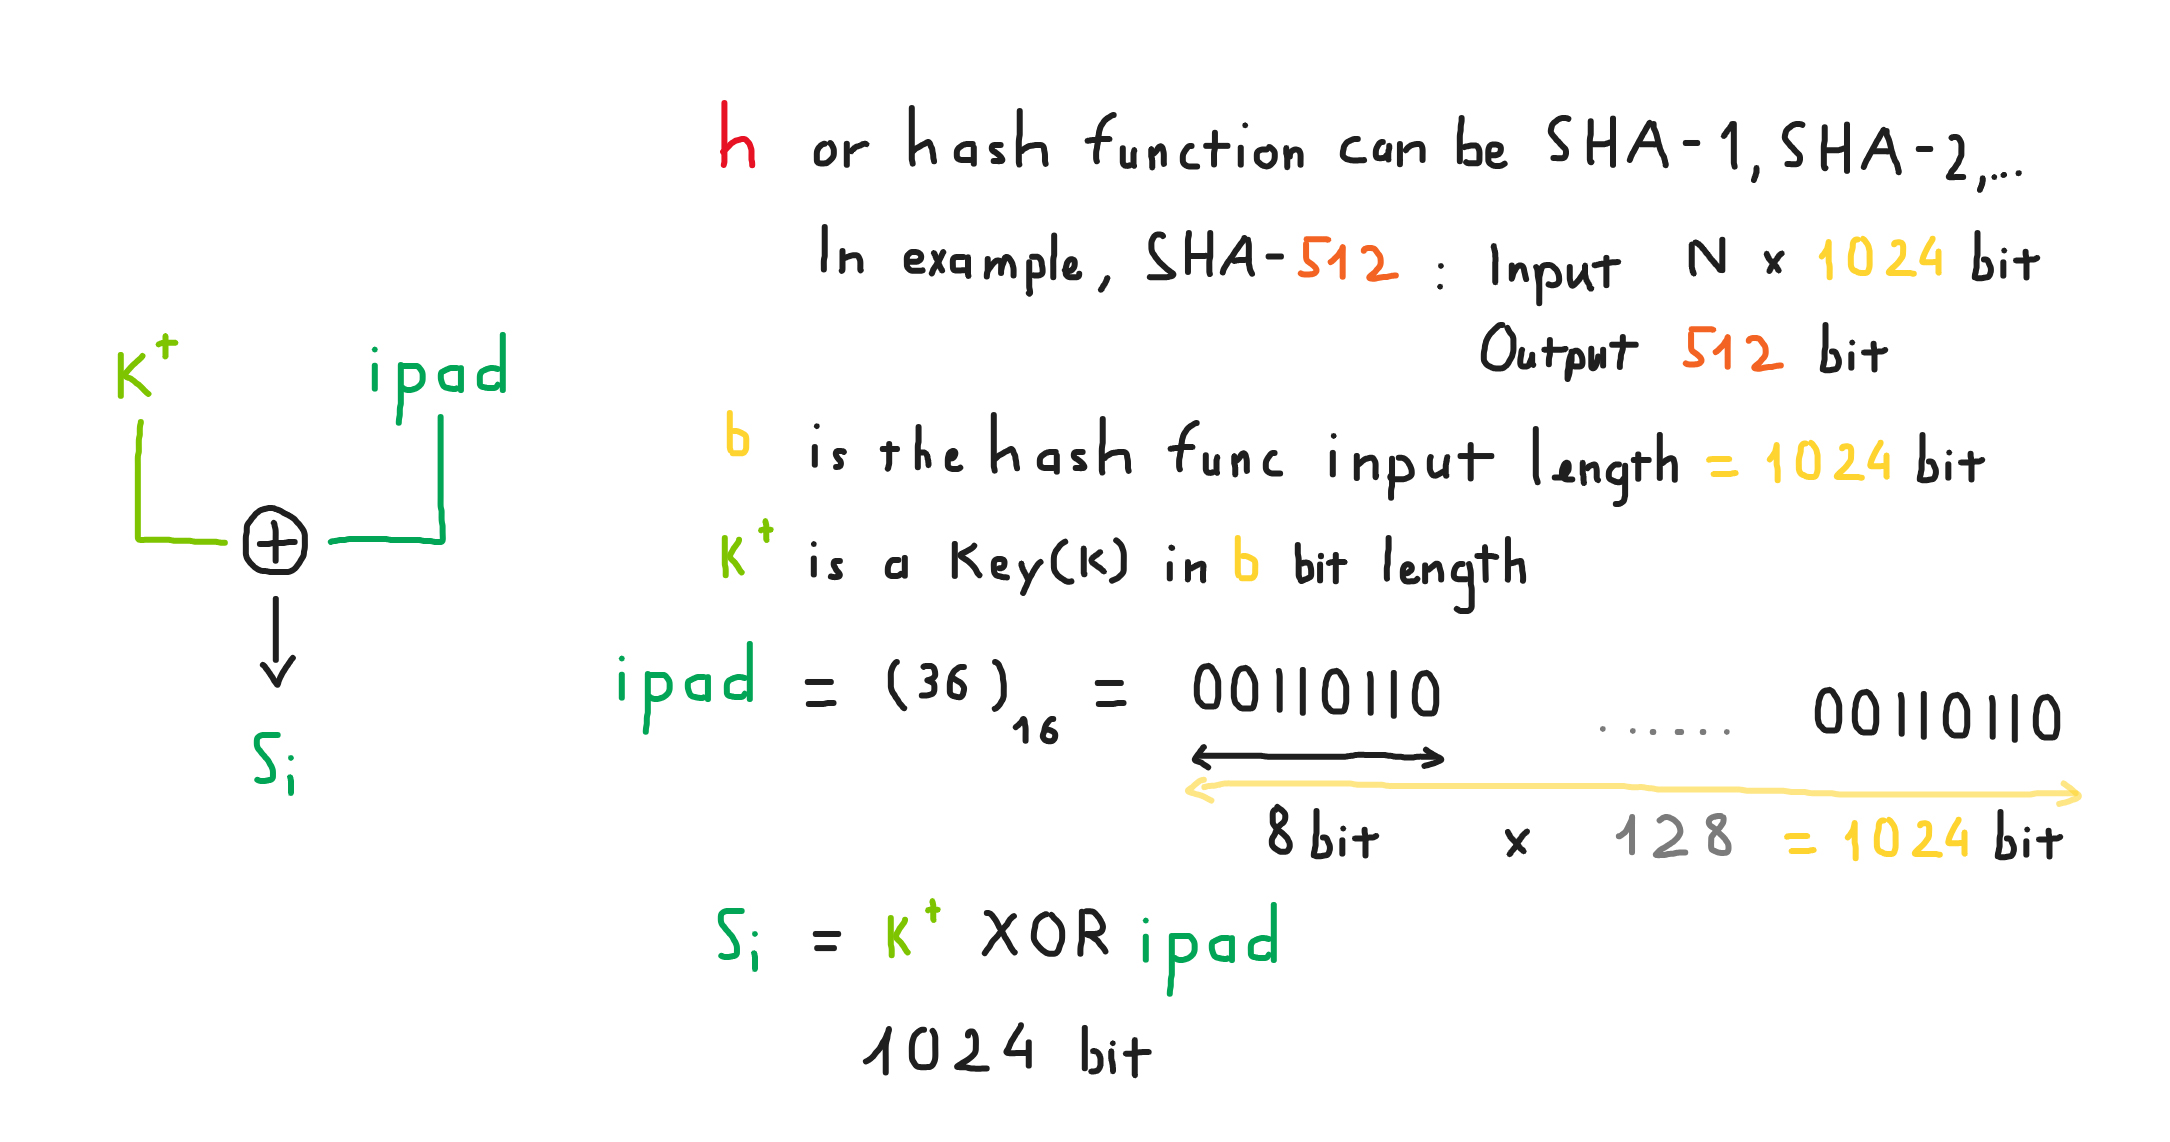 h or hash function can be SHA-1, SHA-2,...
In example, SHA-512 : Input N x 1024 bit
Output 512 bit
K+ ipad
b is the hash func input length = 1024 bit
K+ is a Key(K) in b bit length
ipad = (36)16 = 00110110 ..... 00110110
Si
8 bit x 128 = 1024 bit
Si = K+ XOR ipad
1024 bit